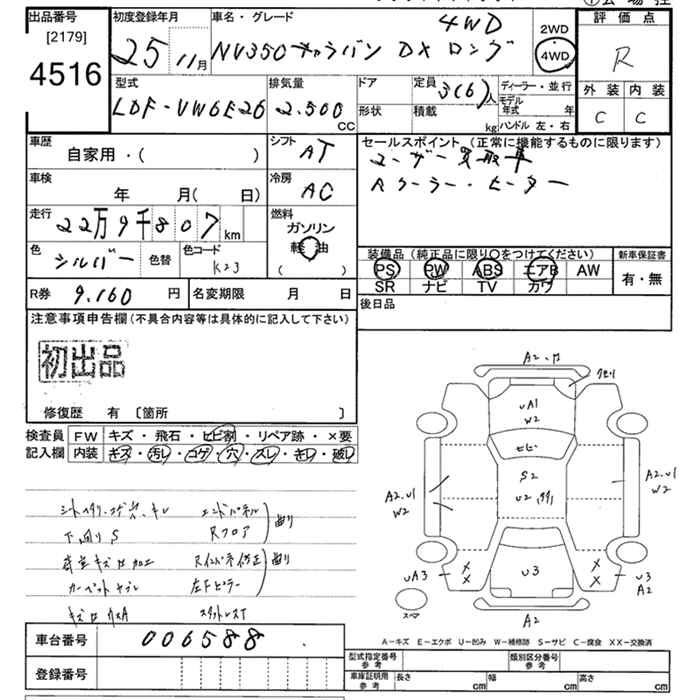 出品番号
[2179]
4516
初度登録年月
25 11月
車名・グレード
NV350キャラバン DX ロング
4WD
2WD
4WD
評価点
R
外装 内装
C C
型式
LDF-VW6E26
排気量
2.500
CC
ドア
形状
定員 3(6)人
積載 kg
ディーラー・並行
モデル年式 年
ハンドル 左・右
車歴
自家用・( )
シフト
AT
セールスポイント (正常に機能するものに限ります)
ユーザー買取車
Rクーラー・ヒーター
車検
年 月( 日)
冷房
AC
走行
22万9千807 km
燃料
ガソリン
軽油
( )
色
シルバー
色替
色コード
K23
装備品 (純正品に限り○をつけてください)
PS PW ABS エアB AW
SR ナビ TV カワ
新車保証書
有・無
R券 9.160 円
名変期限 月 日
後日品
注意事項申告欄 (不具合内容等は具体的に記入して下さい)
初出品
修復歴 有 〔箇所 〕
検査員記入欄
FW キズ・飛石・ヒビ割・リペア跡・×要
内装 キズ・汚レ・コゲ・穴・スレ・キレ・破レ
下回りS
エンドパネル
Rフロア
曲り
荷室キズ凹加工
Rインパネ修正
左Fピラー
曲り
スタットレスT
車台番号 006588
登録番号
A2
クモリ
uA1
W2
ヒビ
S2
U2
A2.U1
W2
A2.U1
W2
UA3
X
X
U3
X
X
U3
A2
スペア
A2
A-キズ E-エクボ U-凹み W-補修跡 S-サビ C-腐食 XX-交換済
型式指定番号 参考
類別区分番号 参考
車庫証明用 参考
長さ cm
幅 cm
高さ cm